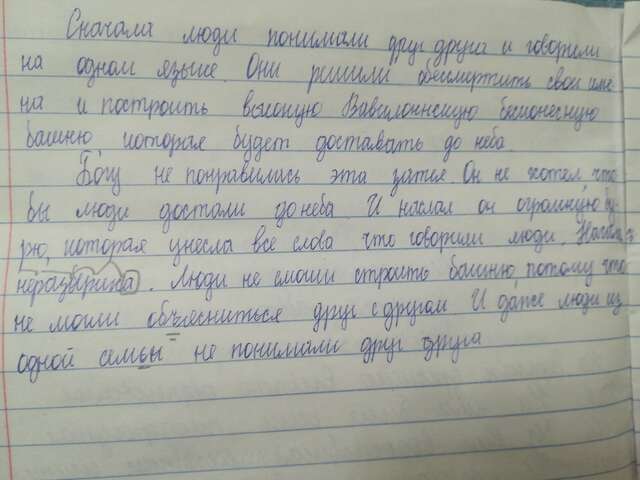 Сначала люди понимали друг друга и говорили
на одном языке. Они решили обесмиртить свои име
на и построить высокую Вавилонскую бесконесную
башню, которая будет доставать до неба.
Богу не понравились эта затея. Он не хотел, что
бы люди достали до неба. И наслал он огромную бу
рю, которая унесла все слова что говорили люди.
неразбириха. Люди не смоши строить башню, потому что
не могли объясниться друг с другом. И даже люди из
одной семьы не понимали друг друга